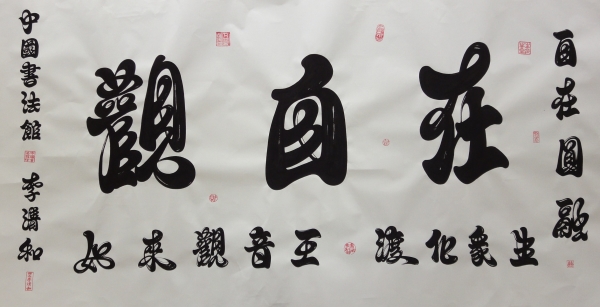 觀自在
自在圓融
如來觀音王 渡化衆生
中國書法館